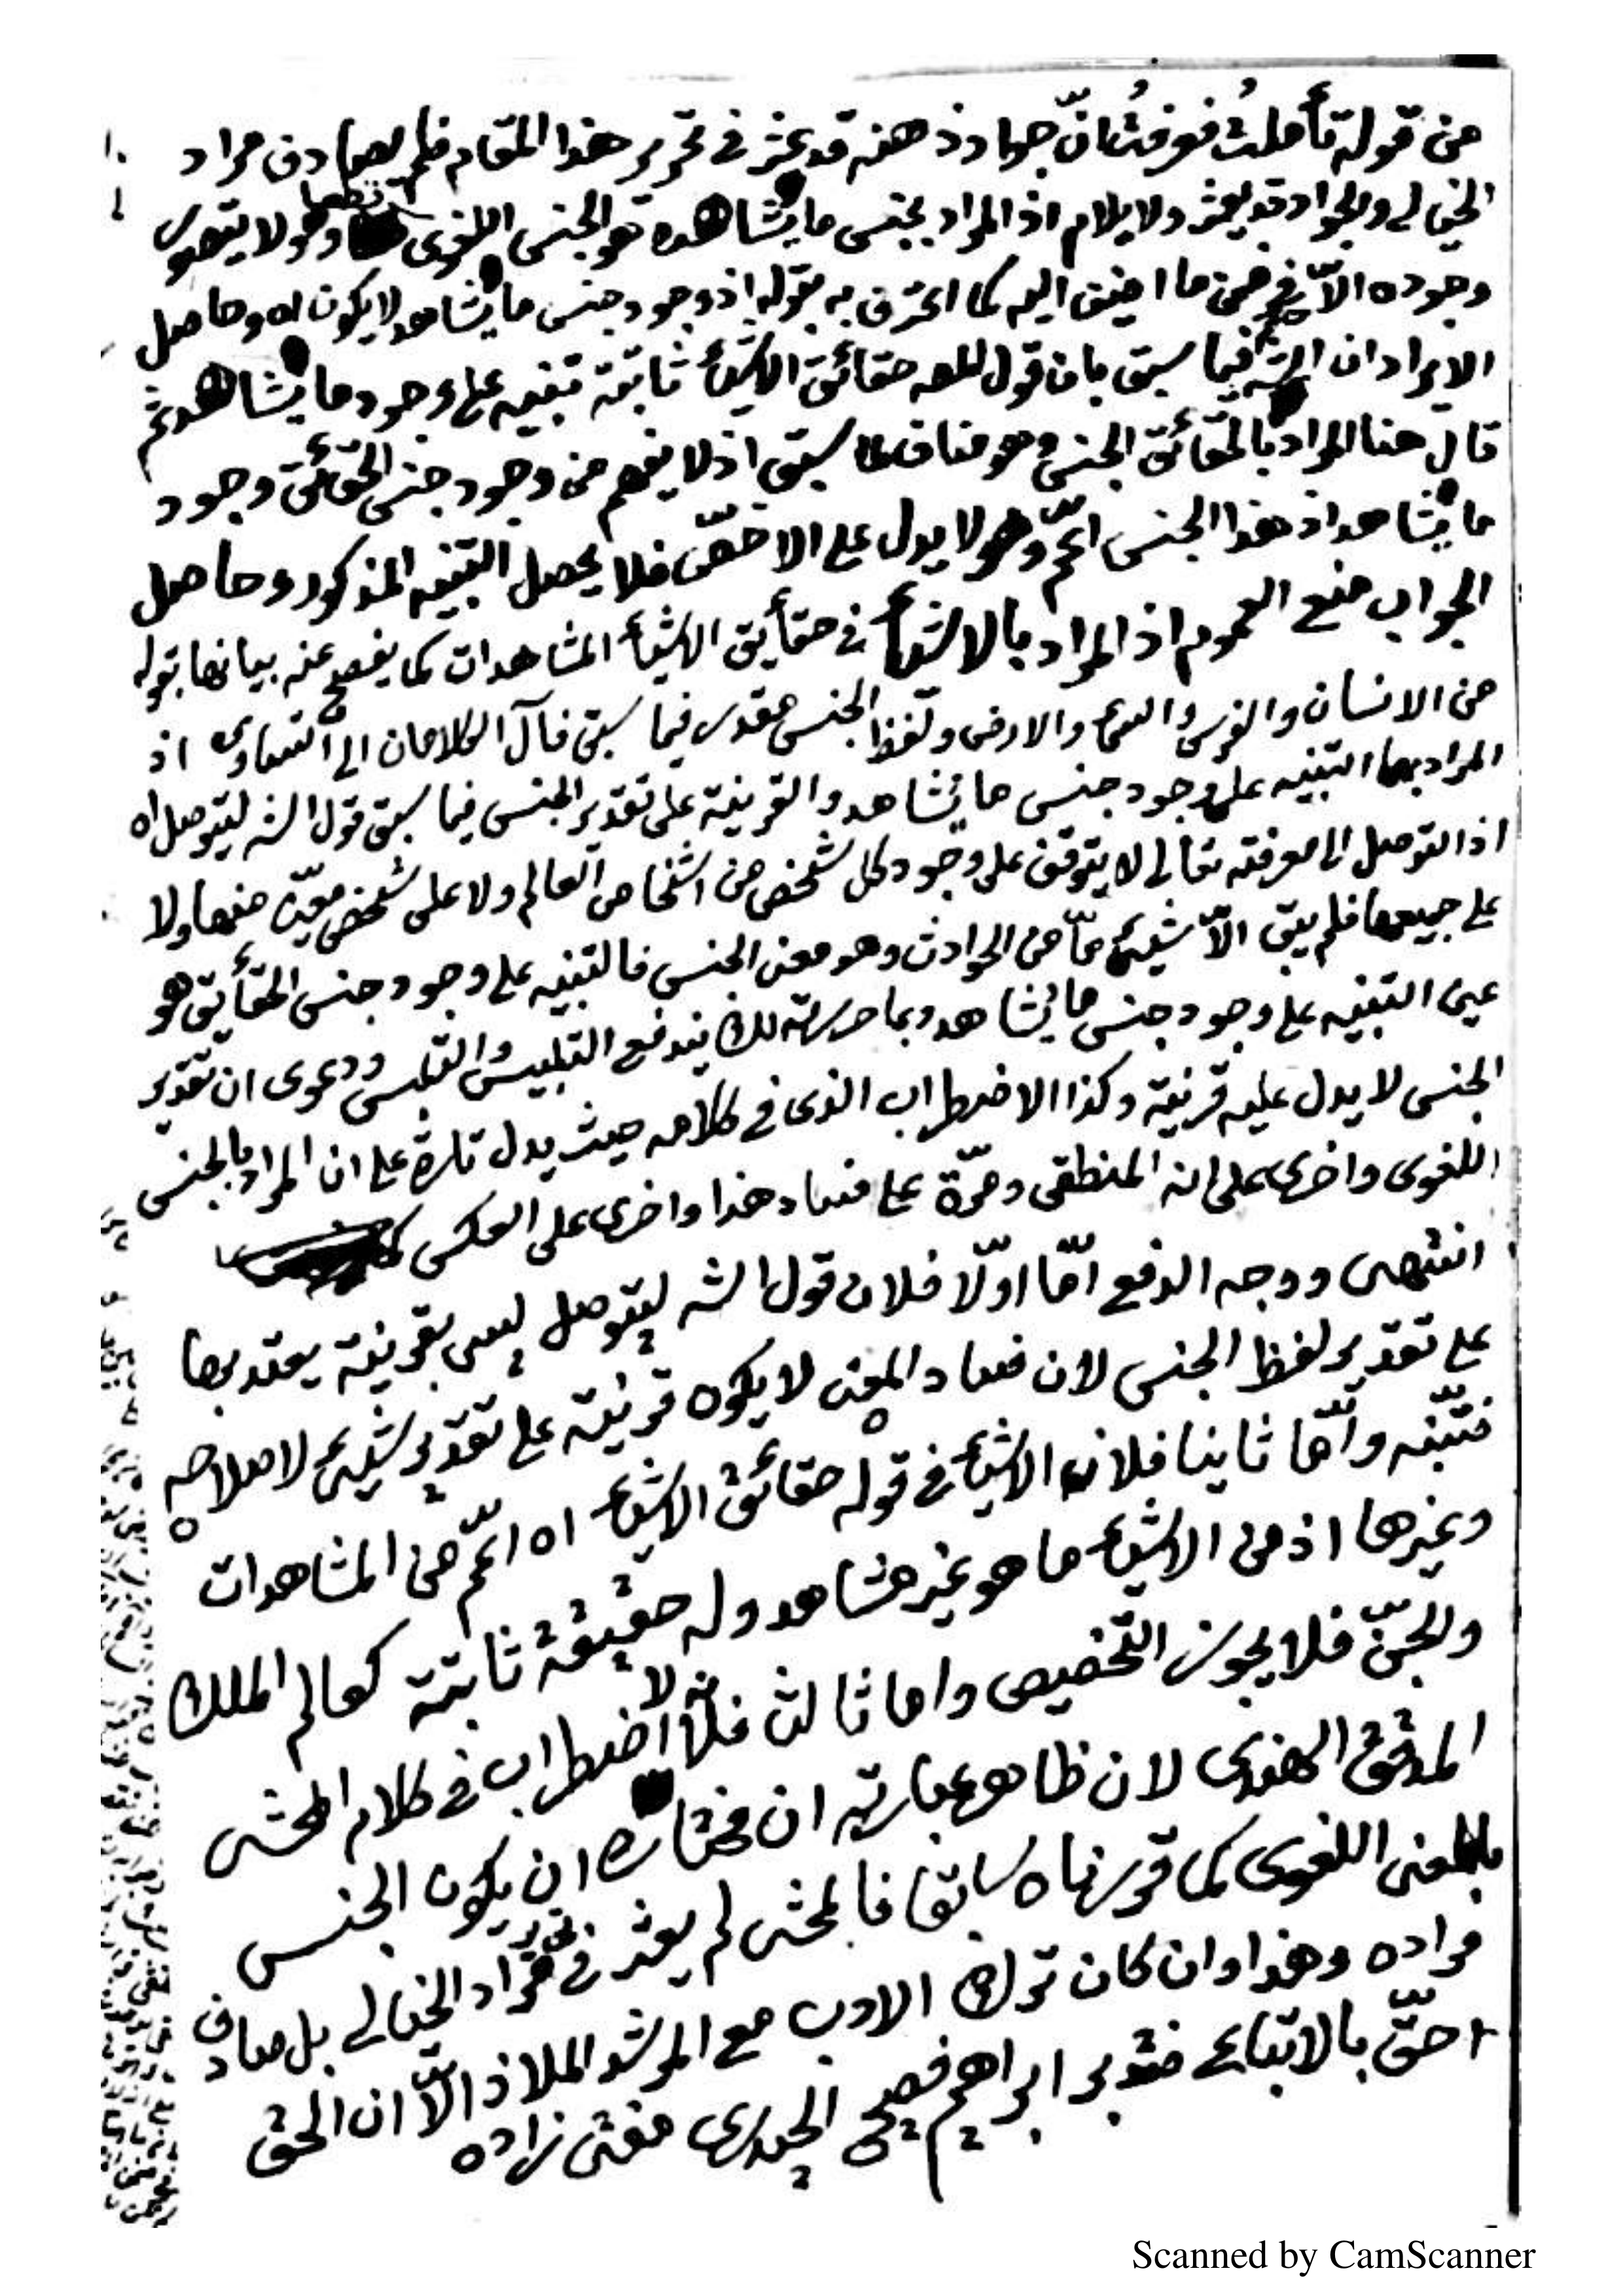 من قوله تأملتُ فعرفتُ انّ جواد ذهنه قد عثر في تحرير هذا المقام فلم يصادف مراد
الخيالي والجواد قد يعثر ولا يلام اذ المراد بجنس ما يشاهد هو الجنس اللغوى قطعا وهو لا يتصور
وجوده الاّ في ضمن ما اضيف اليه كما اعترف به بقوله اذ وجود جنس ما يشاهد لا يكون اه وحاصل
الايراد ان الشه فيما سبق بان قول المص حقائق الاشيأ ثابتة تنبيه على وجود ما يشاهد ثم
قال هنا المراد بالحقائق الجنس وهو مناف لما سبق اذ لا يفهم من وجود جنس الحقائق وجود
ما يشاهد اذ هذا الجنس اعمّ وهو لا يدل على الاخصّ فلا يحصل التنبيه المذكور وحاصل
الجواب منع العموم اذ المراد بالاشيأ في حقأيق الاشيأ المشاهدات كما يفصح عنه بيانها بقوله
من الانسان والفرس والسمأ والارض ولفظ الجنس مقدر فيما سبق فآل الكلامان الى التساوى اذ
المراد بهما التنبيه على وجود جنس ما يشاهد والقرينة على تقدير الجنس فيما سبق قول الشه ليتوصل اه
اذ التوصل الى معرفته تعالى لا يتوقف على وجود كل شخص من اشخاص العالم ولا على شخص معيّن منها ولا
على جميعها فلم يبق الاّ شيئ مّا من الحوادث وهو معنى الجنس فالتنبيه على وجود جنس الحقأيق هو
عين التنبيه على وجود جنس ما يشاهد وبما حررته لك يندفع التلبيس والتلبس ودعوى ان تقدير
الجنس لا يدل عليه قرينة وكذا الاضطراب الذى في كلامه حيث يدل تارة على ان المراد بالجنس
اللغوى واخرى على انه المنطقى ومرّة على فساد هذا واخرى على العكس
انتهى ووجه الدفع امّا اوّلا فلان قول الشه ليتوصل ليس بقرينة يعتد بها
على تقدير لفظ الجنس لان فساد المعنى لا يكون قرينة على تقدير شيئ لاصلاحه
فتنبّه وامّا ثانيا فلان الاشيأ في قوله حقائق الاشيأ اه اعمّ من المشاهدات
وغيرها اذ من الاشيأ ما هو غير مشاهد وله حقيقة ثابتة كعالم الملك
والجنّ فلا يجوز التخصيص واما ثالثا فلانه لا اضطراب في كلام المحشى
المدقق الهندى لان ظاهر عبارته ان مختاره ان يكون الجنس
بالمعنى اللغوى كما قررناه سابقا فالمحشى لم يعثر في تحرير مراد الخيالى بل صادف
مراده وهذا وان كان ترك الادب مع المرشد الملاذ الاّ ان الحق
احقّ بالاتباع فتدبر ابراهيم فصيح الحيدرى مفتى زاده
Scanned by CamScanner